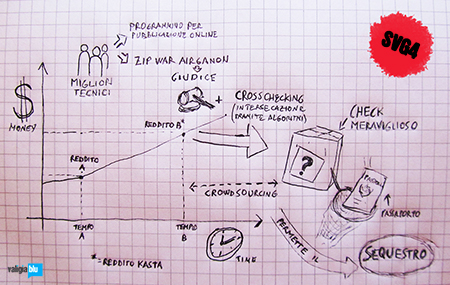 PROGRAMMINO PER
PUBBLICAZIONE ONLINE
SVG4
ZIP WAR AIRGANON
GIUDICE
MIGLIORI
TECNICI
$
MONEY
REDDITO B*
+
CROSSCHECKING
(INTERSECAZIONE
TRAMITE ALGORITMI)
CHECK
MERAVIGLIOSO
?
REDDITO
A
CROWDSOURCING
PASSAPORTO
TEMPO
A
TEMPO
B
TIME
PERMETTE IL
SEQUESTRO
*= REDDITO KASTA
valigia blu